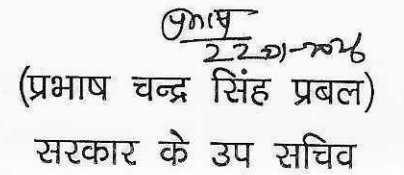 प्रभाष
22-01-2026
(प्रभाष चन्द्र सिंह प्रबल)
सरकार के उप सचिव